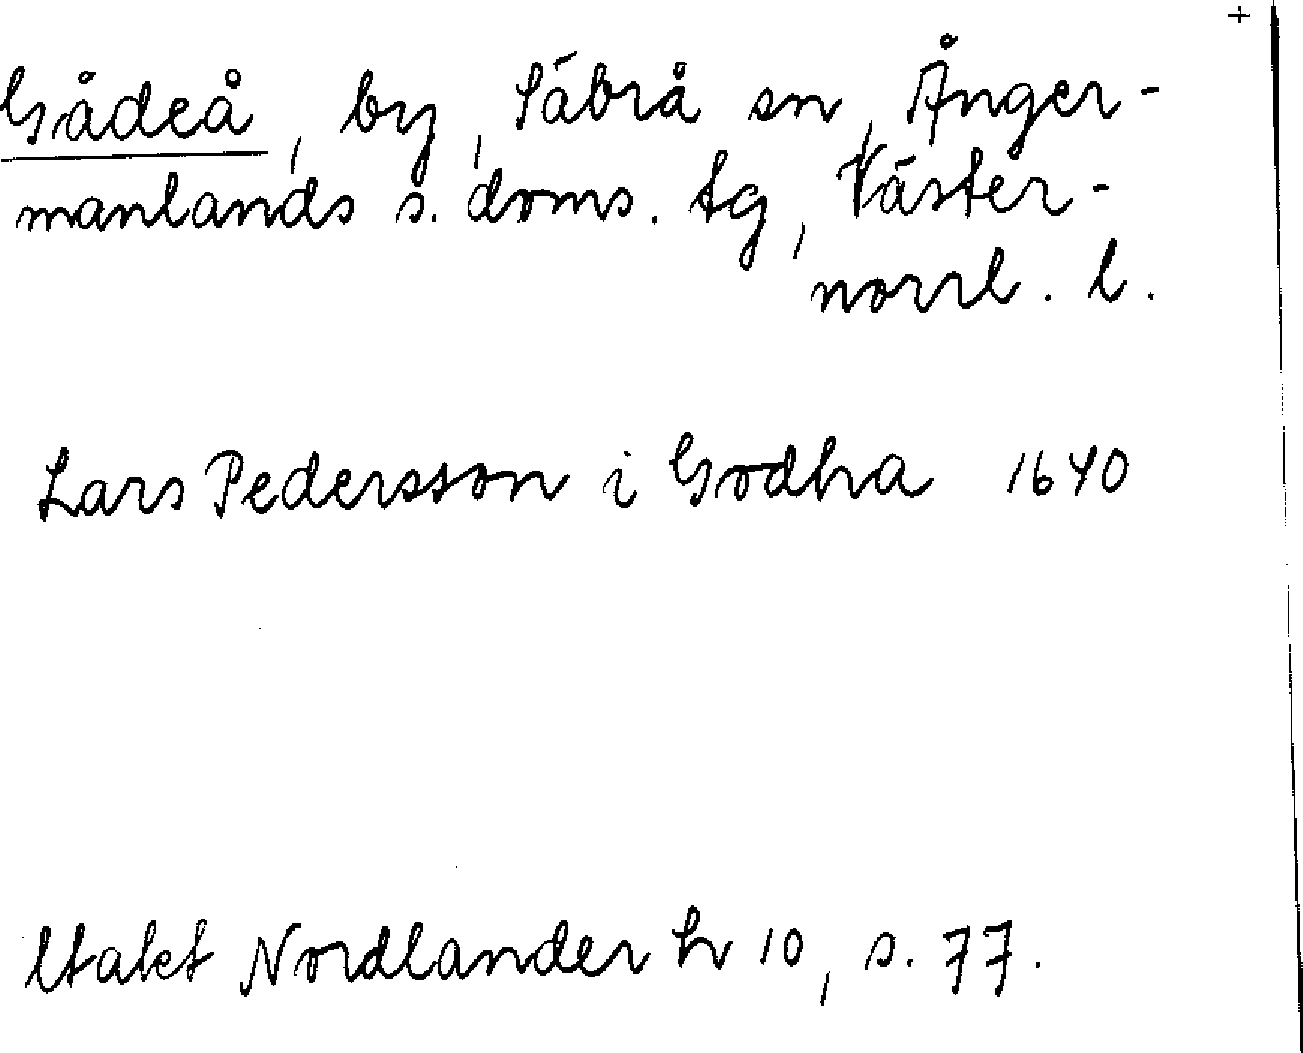 +
Gådeå, by, Säbrå sn, Ånger-
manlands s. doms. tg, Väster-
norrl. l.
Lars Pedersson i Godha 1640
Nordlander h 10, s. 77.